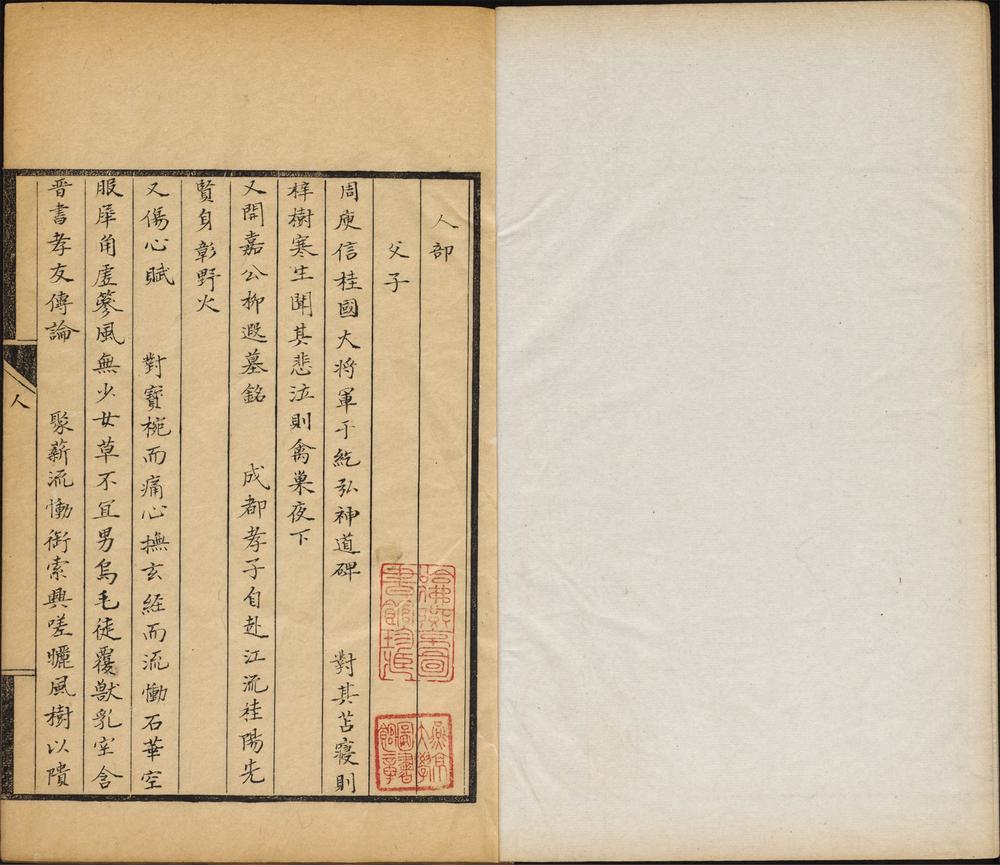 人部
父子
周庾信桂國大將軍于紇弘神道碑 對其苫寢則
梓樹寒生聞其悲泣則禽巢夜下
又開嘉公柳遐墓銘 成都孝子自赴江流桂陽先
賢身彰野火
又傷心賦 對寶椀而痛心撫玄經而流慟石華空
服犀角虛篸風無少女草不宜男烏毛徒覆獸乳空含
晉書孝友傳論 聚薪流慟銜索興嗟曬風樹以隤
人
哈佛燕京圖書館珍藏
燕京大學圖書館章